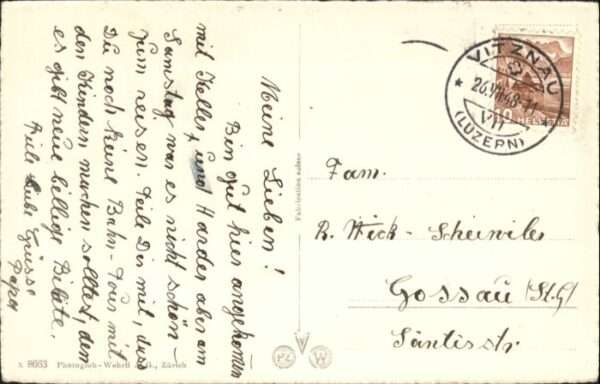 Meine Lieben!
Bin gut hier angekommen
mit Keller, und Harder aber am
Samstag war es nicht schön
zum reisen. Teile Dir mit, dass
Du noch keine Bahn-Tour mit
den Kindern machen solltest, denn
es gibt neue billige Bilete.
Viele liebe Grüsse
Papa
VITZNAU
26.VII.48-11
VII
(LUZERN)
HELVETIA
Fabrication suisse
Fam.
R. Wick-Scheiwiler
Gossau (St.G)
Säntisstr.
PZ
W
x 8663 Photoglob-Wehrli A.G., Zürich